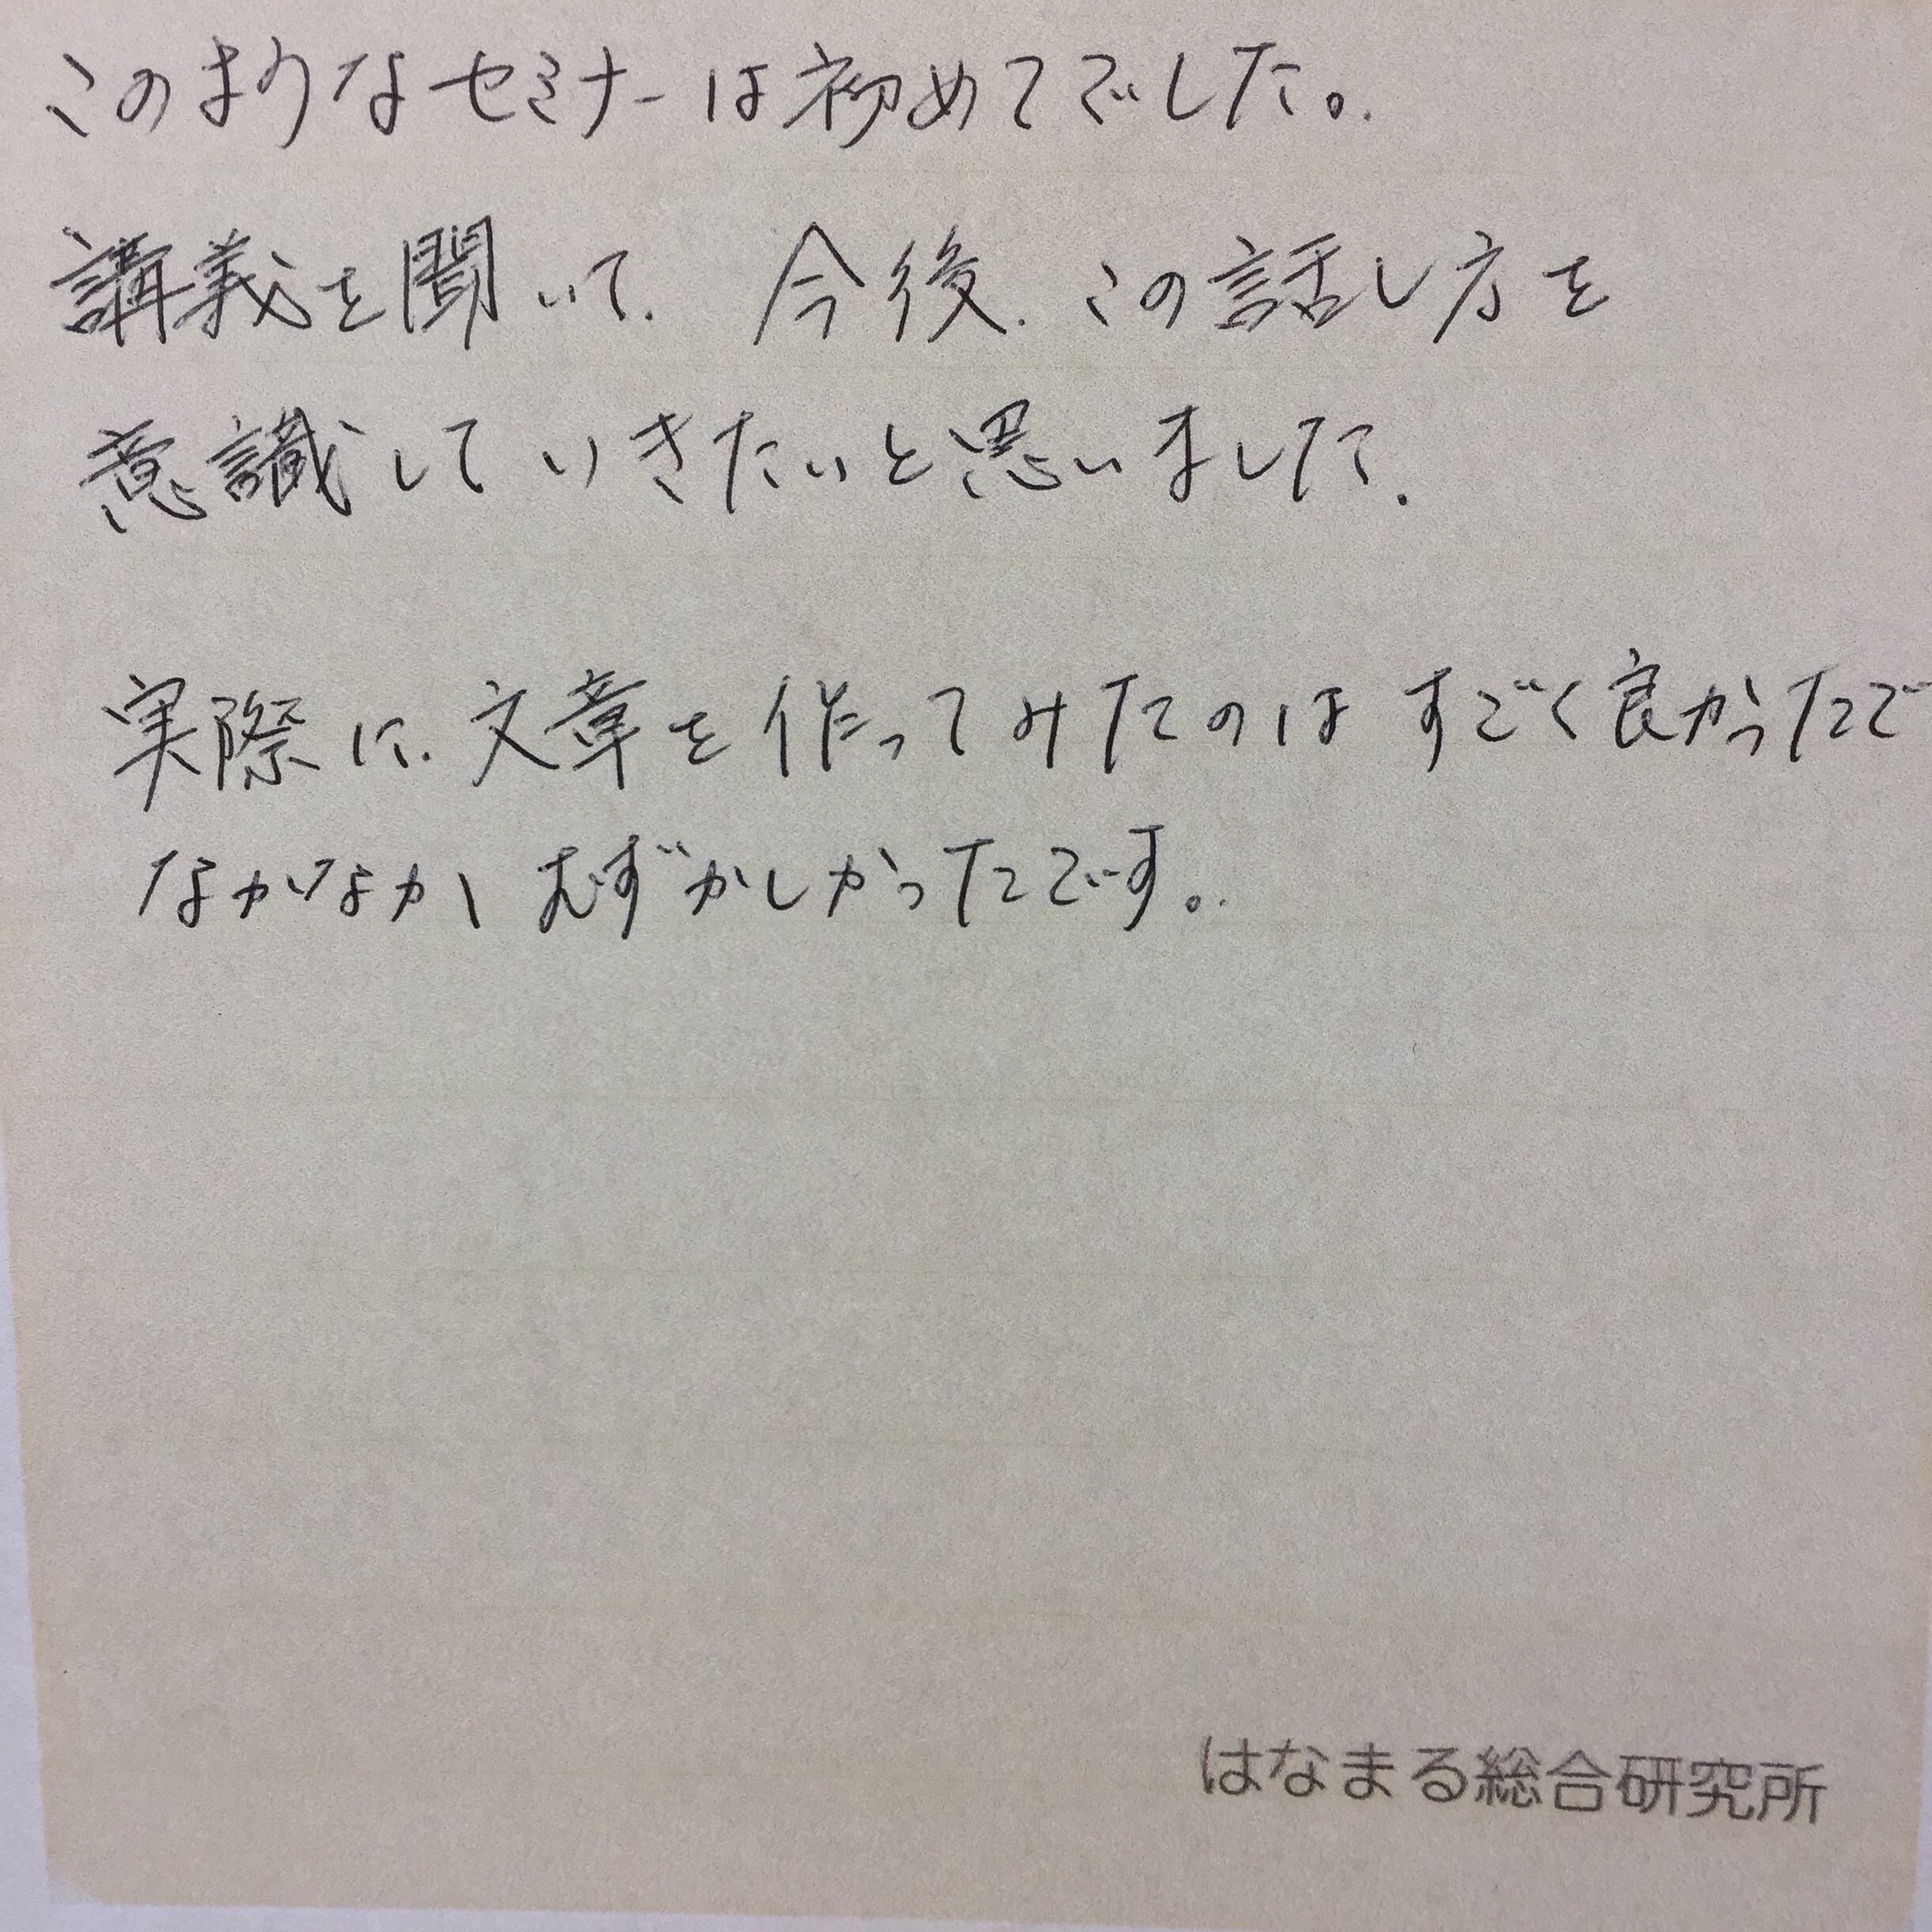 このようなセミナーは初めてでした。
講義を聞いて、今後、この話し方を
意識していきたいと思いました。
実際に、文章を作ってみたのはすごく良かったで
なかなかむずかしかったです。
はなまる総合研究所